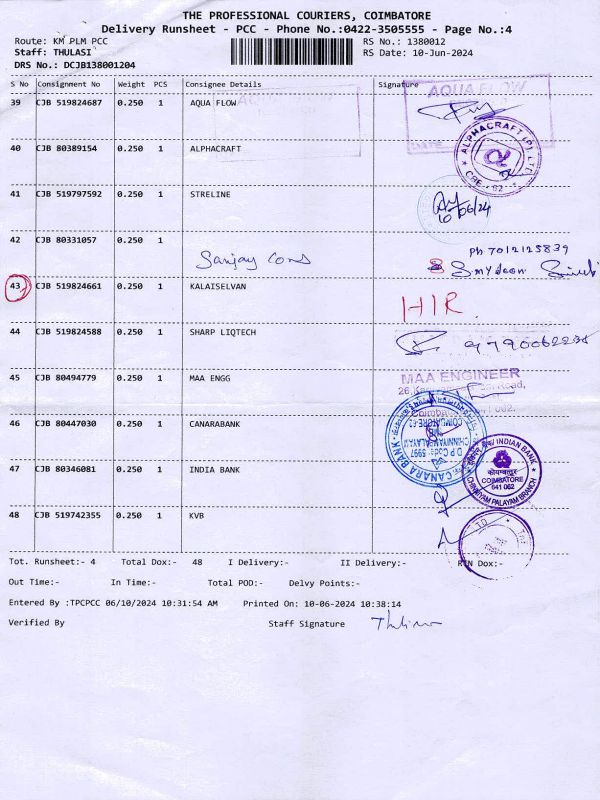 THE PROFESSIONAL COURIERS, COIMBATORE
Delivery Runsheet - PCC - Phone No.:0422-3505555 - Page No.:4
Route: KM PLM PCC RS No.: 1380012
Staff: THULASI RS Date: 10-Jun-2024
DRS No.: DCJB138001204
S No Consignment No Weight PCS Consignee Details Signature
39 CJB 519824687 0.250 1 AQUA FLOW AQUA FLOW
40 CJB 80389154 0.250 1 ALPHACRAFT ALPHACRAFT (P) LTD
41 CJB 519797592 0.250 1 STRELINE 10/06/24
42 CJB 80331057 0.250 1 Sanjay Cons Ph 7012125839
43 CJB 519824661 0.250 1 KALAISELVAN HIR.
44 CJB 519824588 0.250 1 SHARP LIQTECH
45 CJB 80494779 0.250 1 MAA ENGG MAA ENGINEER
46 CJB 80447030 0.250 1 CANARABANK CANARA BANK
47 CJB 80346081 0.250 1 INDIA BANK INDIAN BANK
कोयम्बत्तूर
COIMBATORE
641 062
CHINNIYAM PALAYAM BRANCH
48 CJB 519742355 0.250 1 KVB
Tot. Runsheet:- 4 Total Dox:- 48 I Delivery:- II Delivery:- RTN Dox:-
Out Time:- In Time:- Total POD:- Delvy Points:-
Entered By :TPCPCC 06/10/2024 10:31:54 AM Printed On: 10-06-2024 10:38:14
Verified By Staff Signature